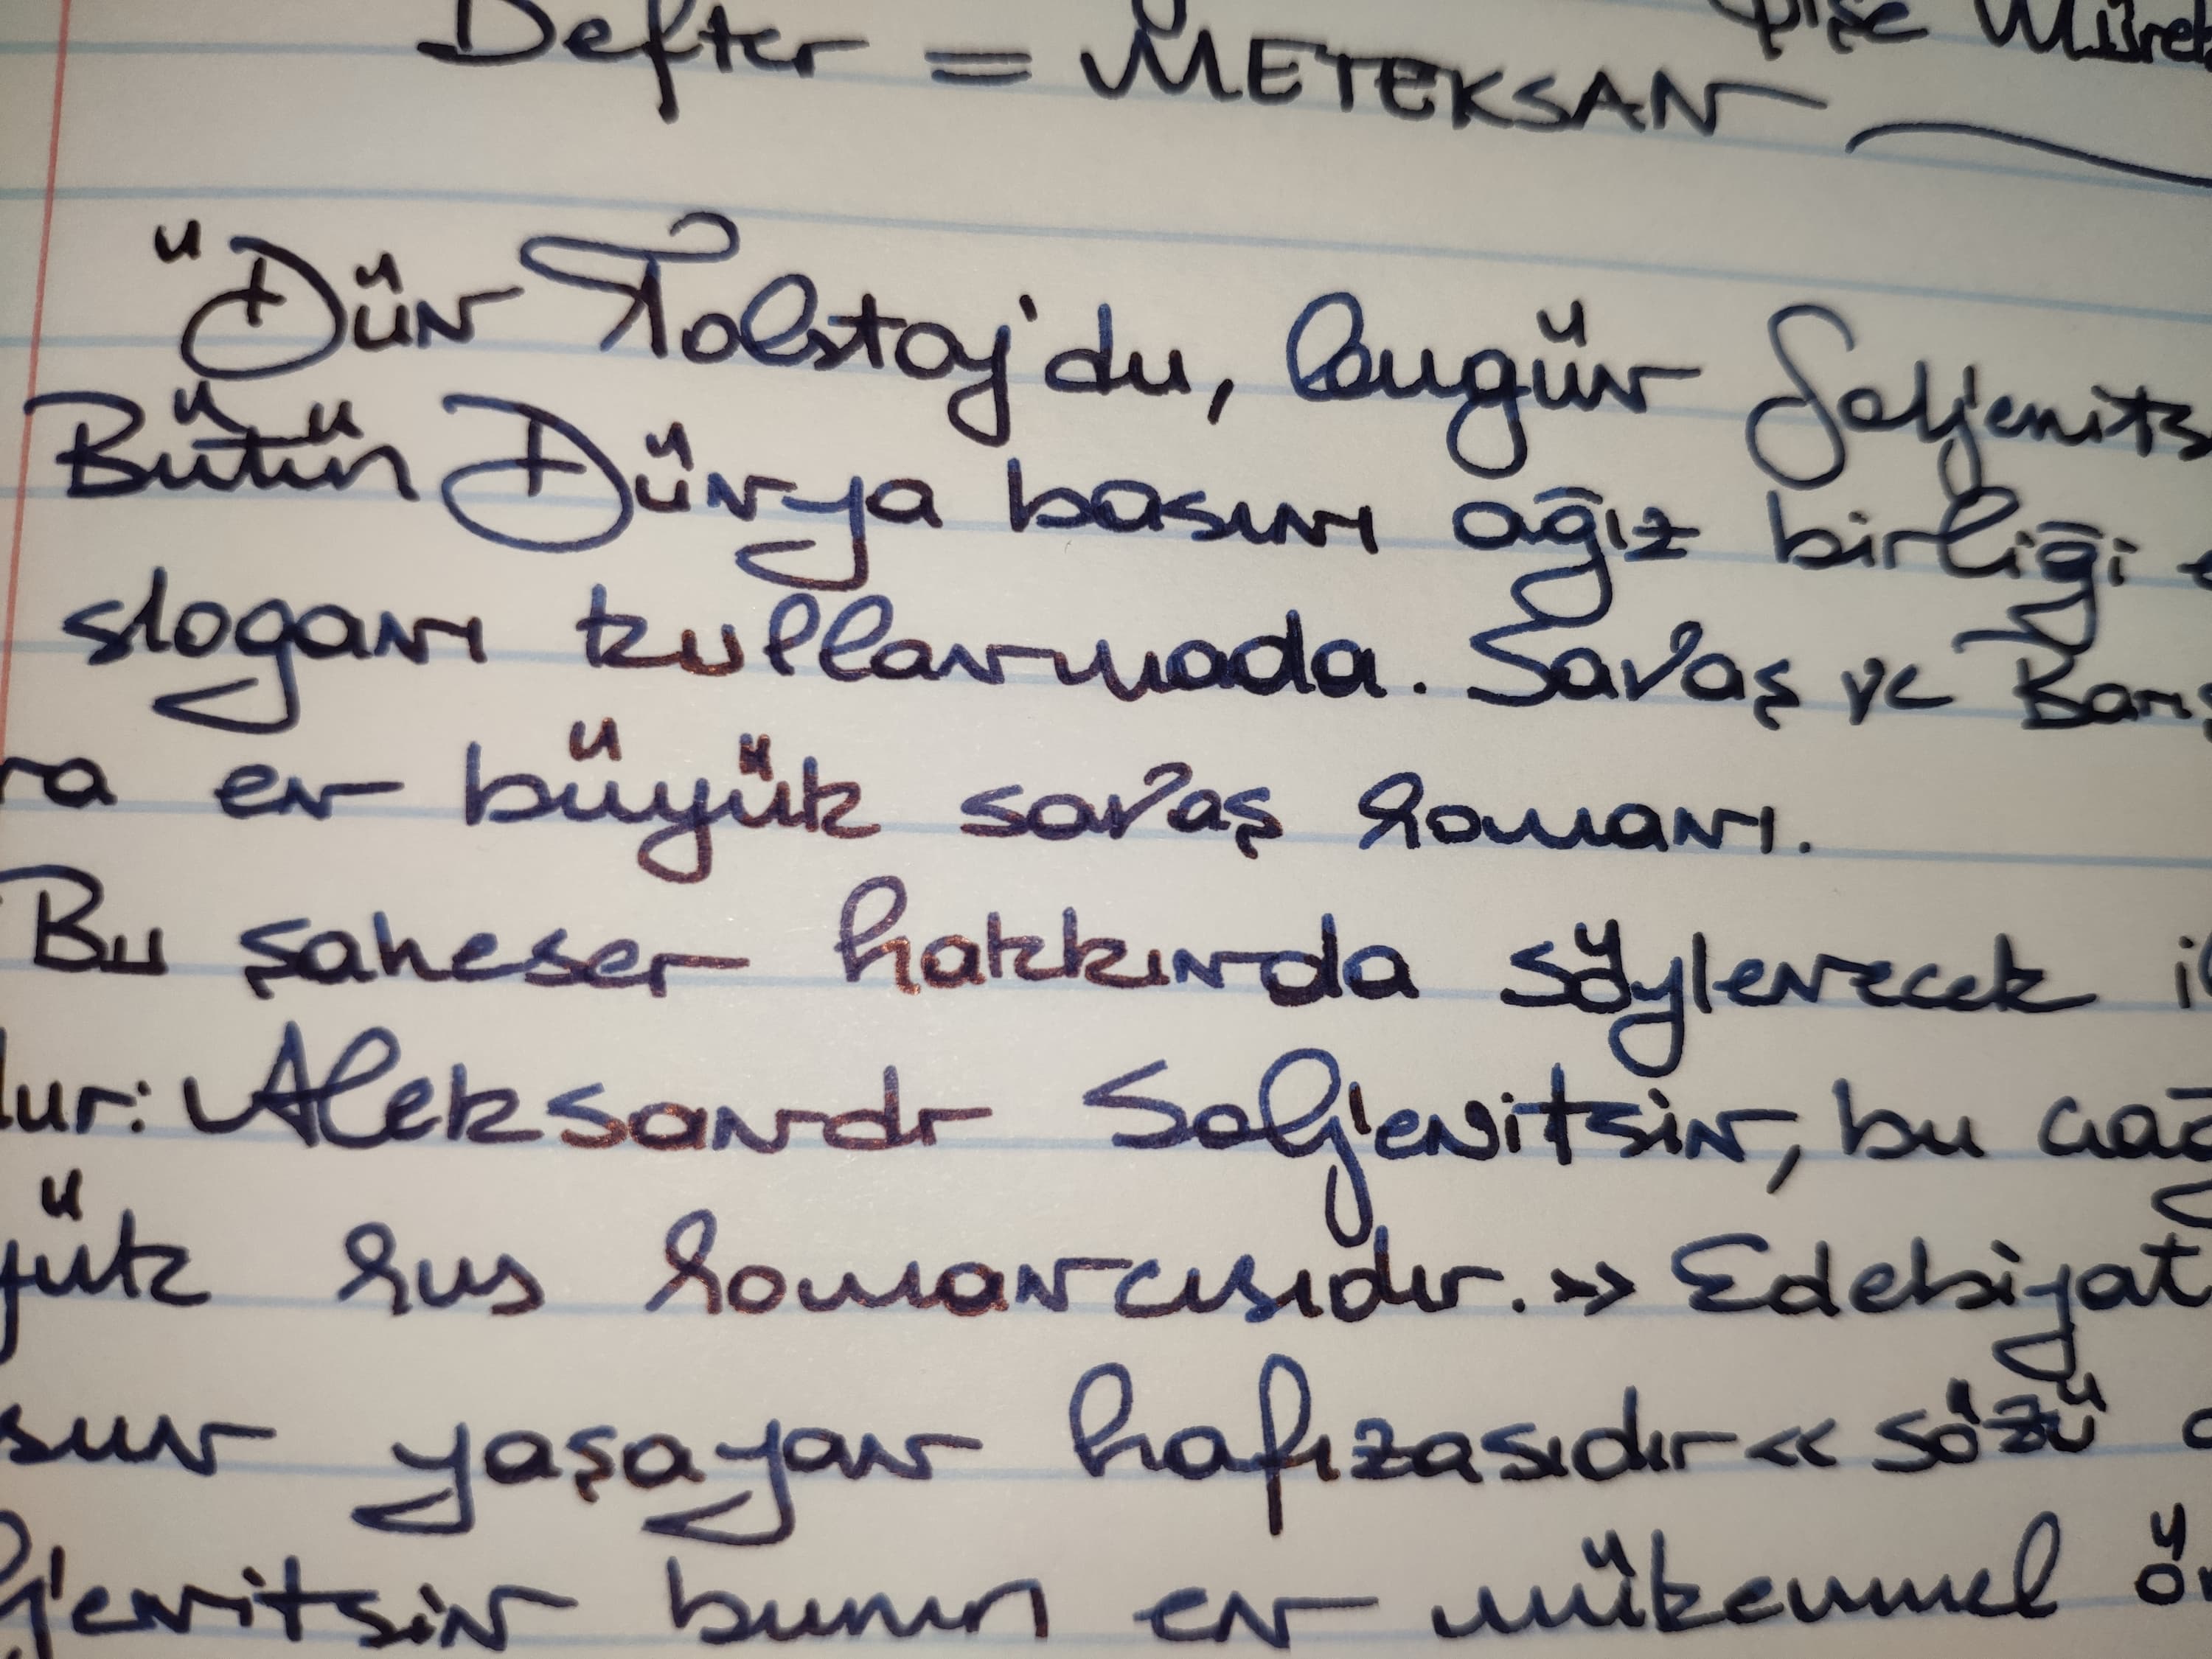 Şişe Mürek
Defter = METEKSAN
"Dün Tolstoj'du, bugün Soljenits
Bütün Dünya basını ağız birliği e
sloganı kullanmada. Savaş ve Barış
ra en büyük savaş romanı.
Bu şaheser hakkında söylenecek il
dur: Aleksandr Soljenitsin, bu çağ
yük rus romancısıdır.» Edebiyat
sun yaşayan hafızasıdır« sözü
ljenitsin bunun en mükemmel ör